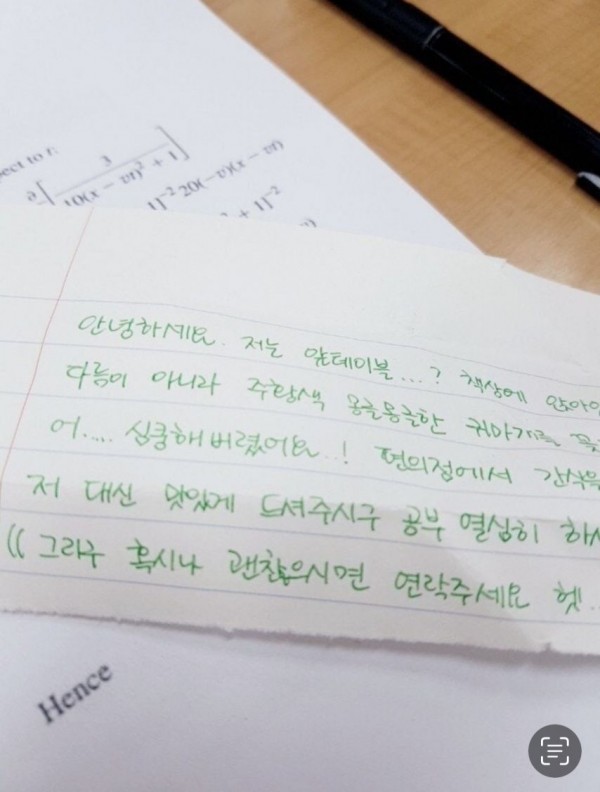 pect to t:
3
10(x − vt)² + 1
]⁻² 20(−v)(x − vt)
+ 1]⁻²
안녕하세요. 저는 앞테이블...? 책상에 앉아있
다름이 아니라 주황색 몽글몽글한 귀마개를 꽂
어.... 심쿵해버렸어요..! 편의점에서 간식을
저 대신 맛있게 드셔주시구 공부 열심히 하시
(( 그리구 혹시나 괜찮으시면 연락주세요 헷..
Hence